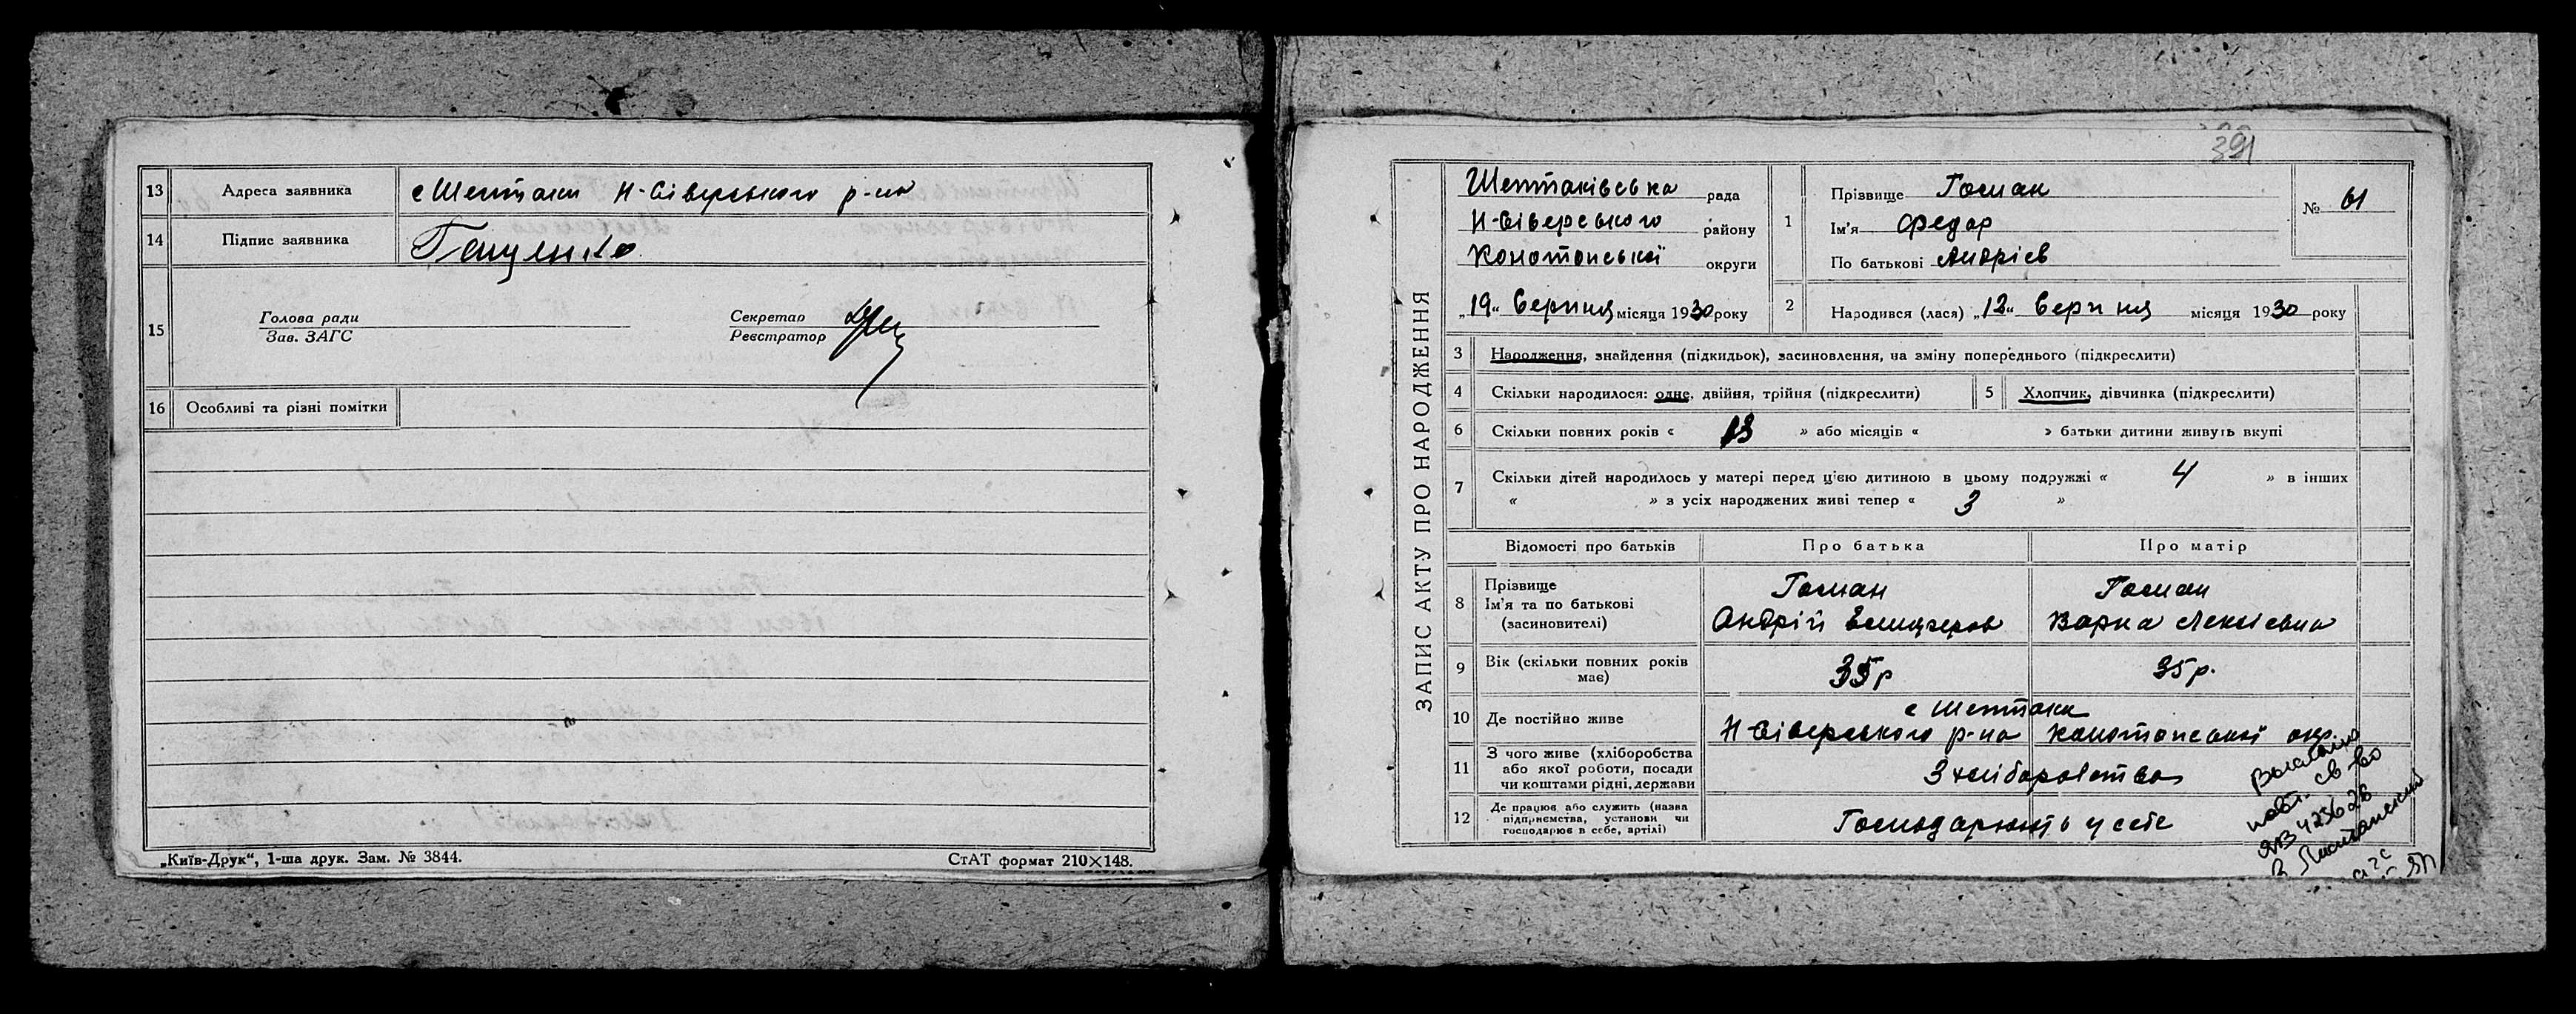 13 Адреса заявника с Шептаки Н-Сіверського р-на
14 Підпис заявника Гащенко
15 Голова ради
Зав. ЗАГС
Секретар
Реєстратор
16 Особливі та різні помітки
„Київ-Друк“, 1-ша друк. Зам. № 3844.
СтАТ формат 210×148.
391
ЗАПИС АКТУ ПРО НАРОДЖЕННЯ
Шептаківська рада
Н-Сіверського району
Конотопської округи
„19“ Серпня місяця 1930 року
1 Прізвище Госпан
Ім'я Федар
По батькові Андріев
№ 61
2 Народився (лася) „12“ Серпня місяця 1930 року
3 Народження, знайдення (підкидьок), засиновлення, на зміну попереднього (підкреслити)
4 Скільки народилося: одне, двійня, трійня (підкреслити)
5 Хлопчик, дівчинка (підкреслити)
6 Скільки повних років « 13 » або місяців « » батьки дитини живуть вкупі
7 Скільки дітей народилось у матері перед цією дитиною в цьому подружжі « 4 » в інших
« » з усіх народжених живі тепер « 3 »
Відомості про батьків Про батька Про матір
8 Прізвище
Ім'я та по батькові
(засиновителі)
Госпан
Андрій
Госпан
Варка Лексіевна
9 Вік (скільки повних років
має)
35р
35р.
10 Де постійно живе
с Шептаки
Н Сіверського р-на Конотопської окр.
11 З чого живе (хліборобства
або якої роботи, посади
чи коштами рідні, держави
З хліборобства
12 Де працює або служить (назва
підприємства, установи чи
господарює в себе, артілі)
Господарюють у себе
Выслано
повт. св-во
ЯВ 425628